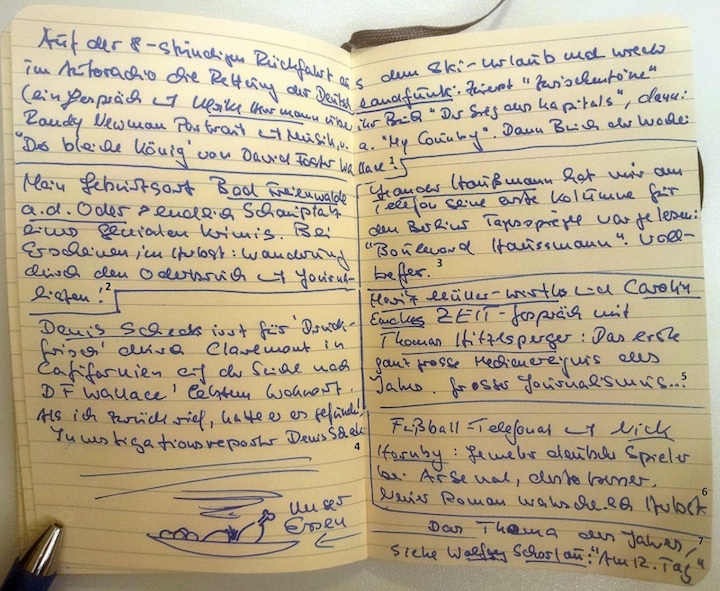 Auf der 8-stündigen Rückfahrt aus dem Ski-Urlaub
im Autoradio die Rettung der Deutschlandfunk. Zuerst "Zwischentöne"
(ein Gespräch mit Ulrike Herrmann über ihr Buch "Der Sieg des Kapitals", dann:
Randy Newman Portrait mit Musik, u.a. "My Country". Dann Buch der Woche
"Der bleiche König" von David Foster Wallace! 1
Mein Geburtsort Bad Freienwalde
a.d. Oder endlich Schauplatz
eines genialen Krimis. Bei
Erscheinen, im Herbst: Wanderung
durch den Oderbruch mit Journa-
listen! 2
Denis Scheck irrt für 'Druck-
frisch' durch Claremont in
Californien auf der Suche nach
DF Wallace' letztem Wohnort.
Als ich zurück rief, hatte er es gefunden!
Investigationsreporter Denis Scheck 4
Unser
Essen
Leander Haußmann hat mir am
Telefon seine erste Kolumne für
den Berliner Tagesspiegel vorgelesen:
"Boulevard Haussmann". Voll-
treffer. 3
Moritz Müller-Wirths und Carolin
Emckes ZEIT-Gespräch mit
Thomas Hitzlsperger: Das erste
ganz grosse Medienereignis des
Jahres. Grosser Journalismus...! 5
Fußball-Telefonat mit Nick
Hornby: Je mehr deutsche Spieler
bei Arsenal, desto besser.
Neuer Roman wahrscheinl. Herbst 6
Das Thema des Jahres, 7
siehe Wolfgang Schorlau: "Am 12. Tag"